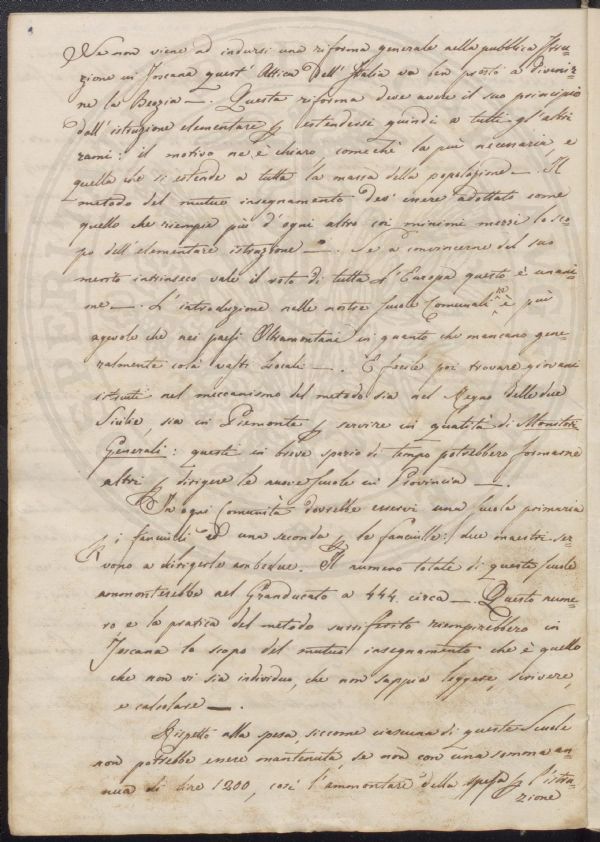 Se non viene ad indursi una riforma generale nella pubblica Istru=
zione in Toscana quest' Attica dell' Italia va ben presto a divenir=
ne la Beozia —. Questa riforma deve avere il suo principio
dall' istruzione elementare p estendersi quindi a tutti gl' altri
rami: il motivo ne è chiaro comechè la più necessaria e
quella che si estende a tutta la massa della popolazione —. Il
metodo del mutuo insegnamento dev' essere adottato come
quello che riempie più d' ogni altro coi minimi mezzi lo sco=
po dell' elementare istruzione —. Se a convincerne del suo
merito intrinseco vale il voto di tutta l' Europa questo è unani=
me —. L' introduzione nelle nostre Scuole Comunali ne è più
agevole che nei paesi Oltramontani in quanto che mancano gene=
ralmente così vasti locali —. È facile poi trovare giovani
istruiti nel meccanismo del metodo sia nel Regno delle due
Sicilie, sia in Piemonte p servire in qualità di Monitori
Generali: questi in breve spazio di tempo potrebbero formarne
altri p dirigere le nuove scuole in Provincia —.
In ogni Comunità dovrebbe esservi una scuola primaria
p i fanciulli ed una seconda p le fanciulle: due maestri ser=
vono a dirigerle ambedue. Il numero totale di queste scuole
ammonterebbe nel Granducato a 444. circa —. Questo nume=
ro e la pratica del metodo surriferito riempirebbero in
Toscana lo scopo del mutuo insegnamento che è quello
che non vi sia individuo, che non sappia leggere, scrivere,
e calcolare —.
Rispetto alla spesa siccome ciascuna di queste Scuole
non potrebbe essere mantenuta, se non con una somma an=
nua di lire 1200, così l' ammontare della spesa p l' istru=
zione